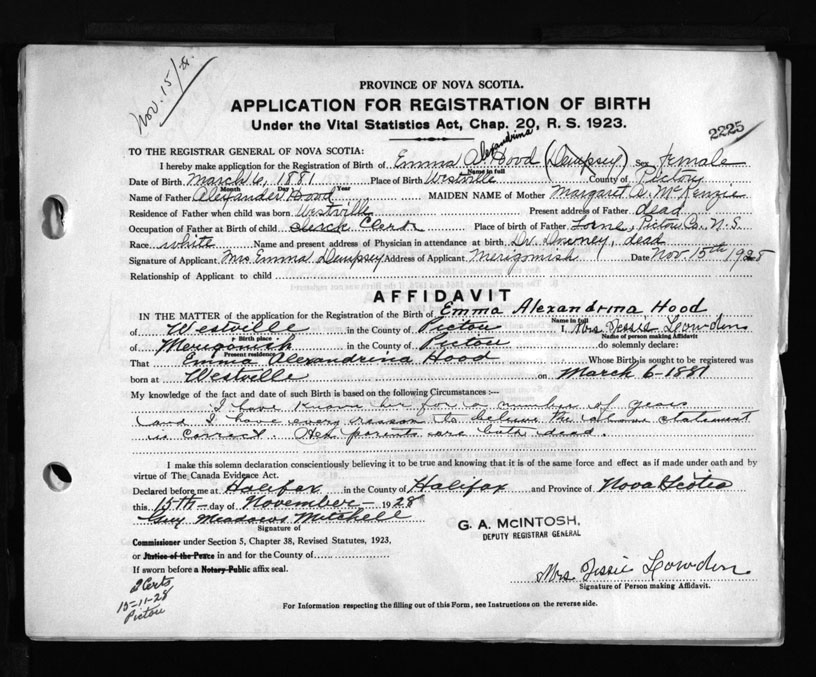 Nov. 15/28.
PROVINCE OF NOVA SCOTIA.
APPLICATION FOR REGISTRATION OF BIRTH
Under the Vital Statistics Act, Chap. 20, R. S. 1923.
2225
TO THE REGISTRAR GENERAL OF NOVA SCOTIA:
I hereby make application for the Registration of Birth of Emma Alexandrina Hood (Dempsey) Sex female
Name in full
Date of Birth March 6, 1881 Place of Birth Westville County of Pictou
Month Day Year
Name of Father Alexander Hood MAIDEN NAME of Mother Margaret A. McKenzie
Residence of Father when child was born Westville Present address of Father dead
Occupation of Father at Birth of child Clerk Place of birth of Father Lorne, Pictou Co. N.S.
Race white Name and present address of Physician in attendance at birth Dr. Downey, dead
Signature of Applicant Mrs Emma Dempsey Address of Applicant Merigomish Date Nov. 15th 1928
Relationship of Applicant to child
AFFIDAVIT
IN THE MATTER of the application for the Registration of the Birth of Emma Alexandrina Hood
Name in full
of Westville in the County of Pictou I, Mrs. Jessie Lowden
Birth place Name of person making Affidavit
of Merigomish in the County of Pictou do solemnly declare:
Present residence
That Emma Alexandrina Hood Whose Birth is sought to be registered was
born at Westville on March 6-1881
My knowledge of the fact and date of such Birth is based on the following Circumstances :—
I have known her for a number of years
and I have every reason to believe the above statement
is correct. Her parents are both dead.
I make this solemn declaration conscientiously believing it to be true and knowing that it is of the same force and effect as if made under oath and by
virtue of The Canada Evidence Act.
Declared before me at Halifax in the County of Halifax and Province of Nova Scotia
this 15th day of November 1928
Guy Meadows Mitchell
Signature of
G. A. McINTOSH,
DEPUTY REGISTRAR GENERAL
Commissioner under Section 5, Chapter 38, Revised Statutes, 1923,
or Justice of the Peace in and for the County of
If sworn before a Notary Public affix seal.
Mrs Jessie Lowden
Signature of Person making Affidavit.
2 Certs
15-11-28
Pictou
For Information respecting the filling out of this Form, see Instructions on the reverse side.